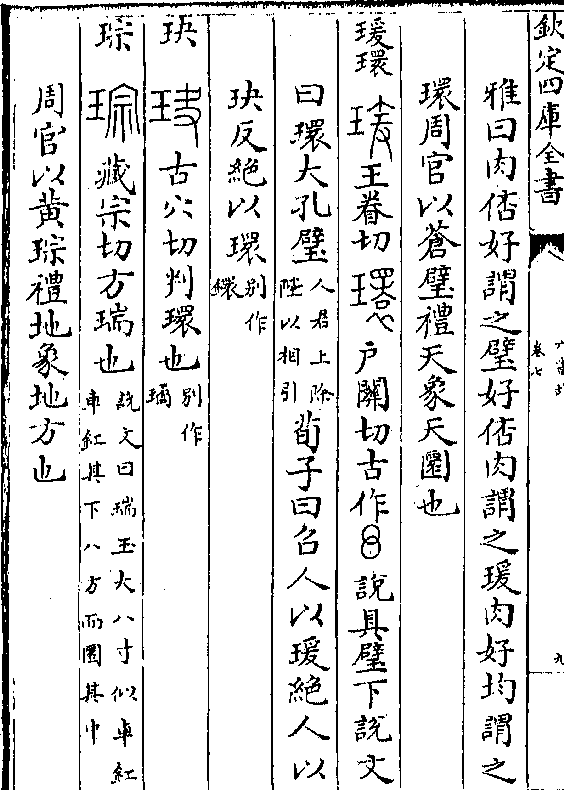 欽定四庫全書
卷七
九
雅曰肉倍好謂之璧好倍肉謂之瑗肉好均謂之
環周官以蒼璧禮天象天圜也
瑗環 瑗王眷切環戶關切古作說具璧下說文
曰環大孔璧人君上除陛以相引荀子曰召人以瑗絕人以
玦反絕以環別作鐶
玦 玦古穴切判環也別作璚
琮 琮藏宗切方瑞也說文曰瑞玉大八寸似車釭車釭其下八方而圜其中
周官以黃琮禮地象地方也